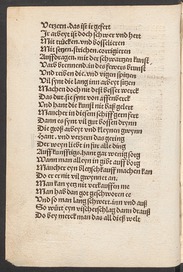 Verzern. das ist ir gefert
Ir arbeyt ist doch schwer vnd hert
Mit rücken. vnd bosselieren
Mit fegen. streichen. corrigieren
Auffdragen. mit der schwartzen kunst
Varb brennen. in der feures brunst
Vnd reiben die. vnd vigen spitzen
Vil synt die lang inn arbeyt sitzen
Machen doch nit deß besser werck
Das dut sie synt von affenberck
Vnd hant die kunst nit baß gelert
Mancher in disem schiff gern fert
Dann es synt vil gut gesellen drynn
Die groß arbeyt vnd kleynen gwynn
Hant. vnd verzeren das gering
Der weyn lieb in für alle ding
Auff künfftigs. hant gar wenig sorg
Wann man alleyn in gibt auff borg
Mancher eyn bloytschkauff machen kan
Do er eret nit vil gwynnet an.
Man kan yetz nit verkauffen me
Man hab dan got geschworen ee
Vnd so man lang schwert. inn vnd auß
So würt eyn vischerschlag darin drauß
Do bey merck man das all dise welt